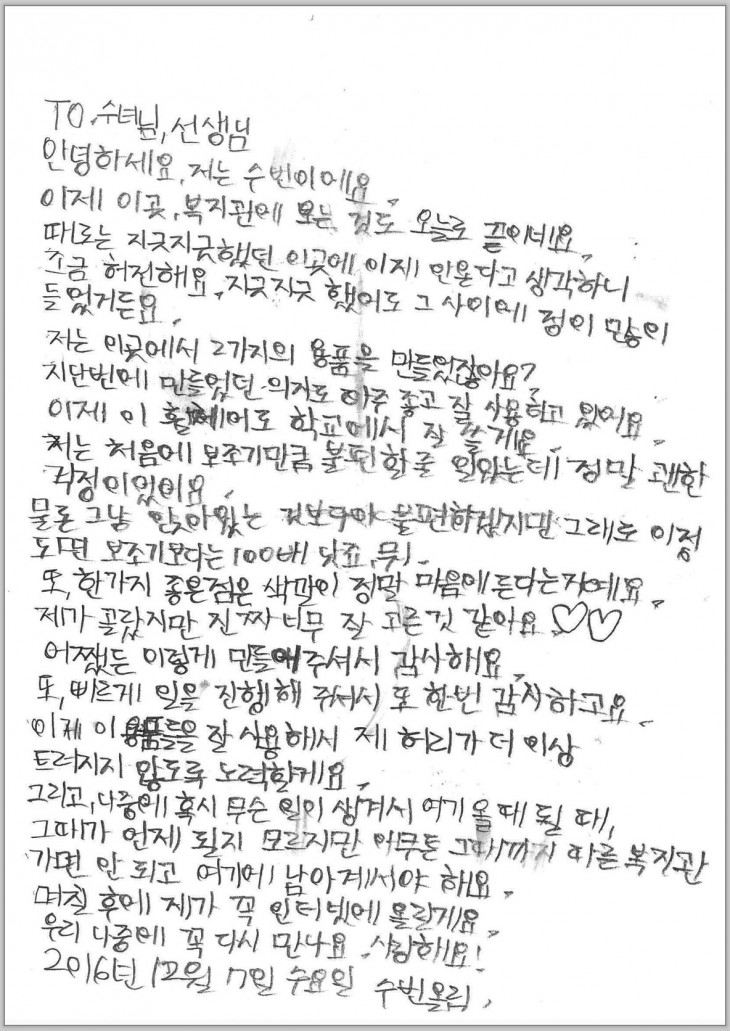 TO. 수녀님, 선생님
안녕하세요. 저는 수빈이에요.
이제 이곳, 복지관에 오는 것도 오늘로 끝이네요.
때로는 지긋지긋했던 이곳에 이제 안온다고 생각하니
조금 허전해요. 지긋지긋 했어도 그 사이에 정이 많이
들었거든요.
저는 이곳에서 2가지의 용품을 만들었잖아요?
지난번에 만들었던 의자도 아주 좋고 잘 사용하고 있어요.
이제 이 휠체어도 학교에서 잘 쓸게요.
저는 처음에 보조기만큼 불편할줄 알았는데 정말 괜한
걱정이었어요.
물론 그냥 앉아있는 것보다야 불편하겠지만 그래도 이정
도면 보조기보다는 100배 낫죠, 뭐.
또, 한가지 좋은점은 색깔이 정말 마음에 든다는거예요.
제가 골랐지만 진짜 너무 잘 고른것 같아요.♡♡
어쨌든 이렇게 만들어주셔서 감사해요.
또, 빠르게 일을 진행해 주셔서 또 한번 감사하고요.
이제 이 용품들을 잘 사용해서 제 허리가 더 이상
트러지지 않도록 노력할게요.
그리고, 나중에 혹시 무슨 일이 생겨서 여기 올 때 될 때,
그때가 언제 될지 모르지만 아무튼 그때까지 다른 복지관
가면 안 되고 여기에 남아계셔야 해요.
며칠 후에 제가 꼭 인터넷에 올릴게요.
우리 나중에 꼭 다시 만나요. 사랑해요!
2016년 12월 7일 수요일 수빈올림.